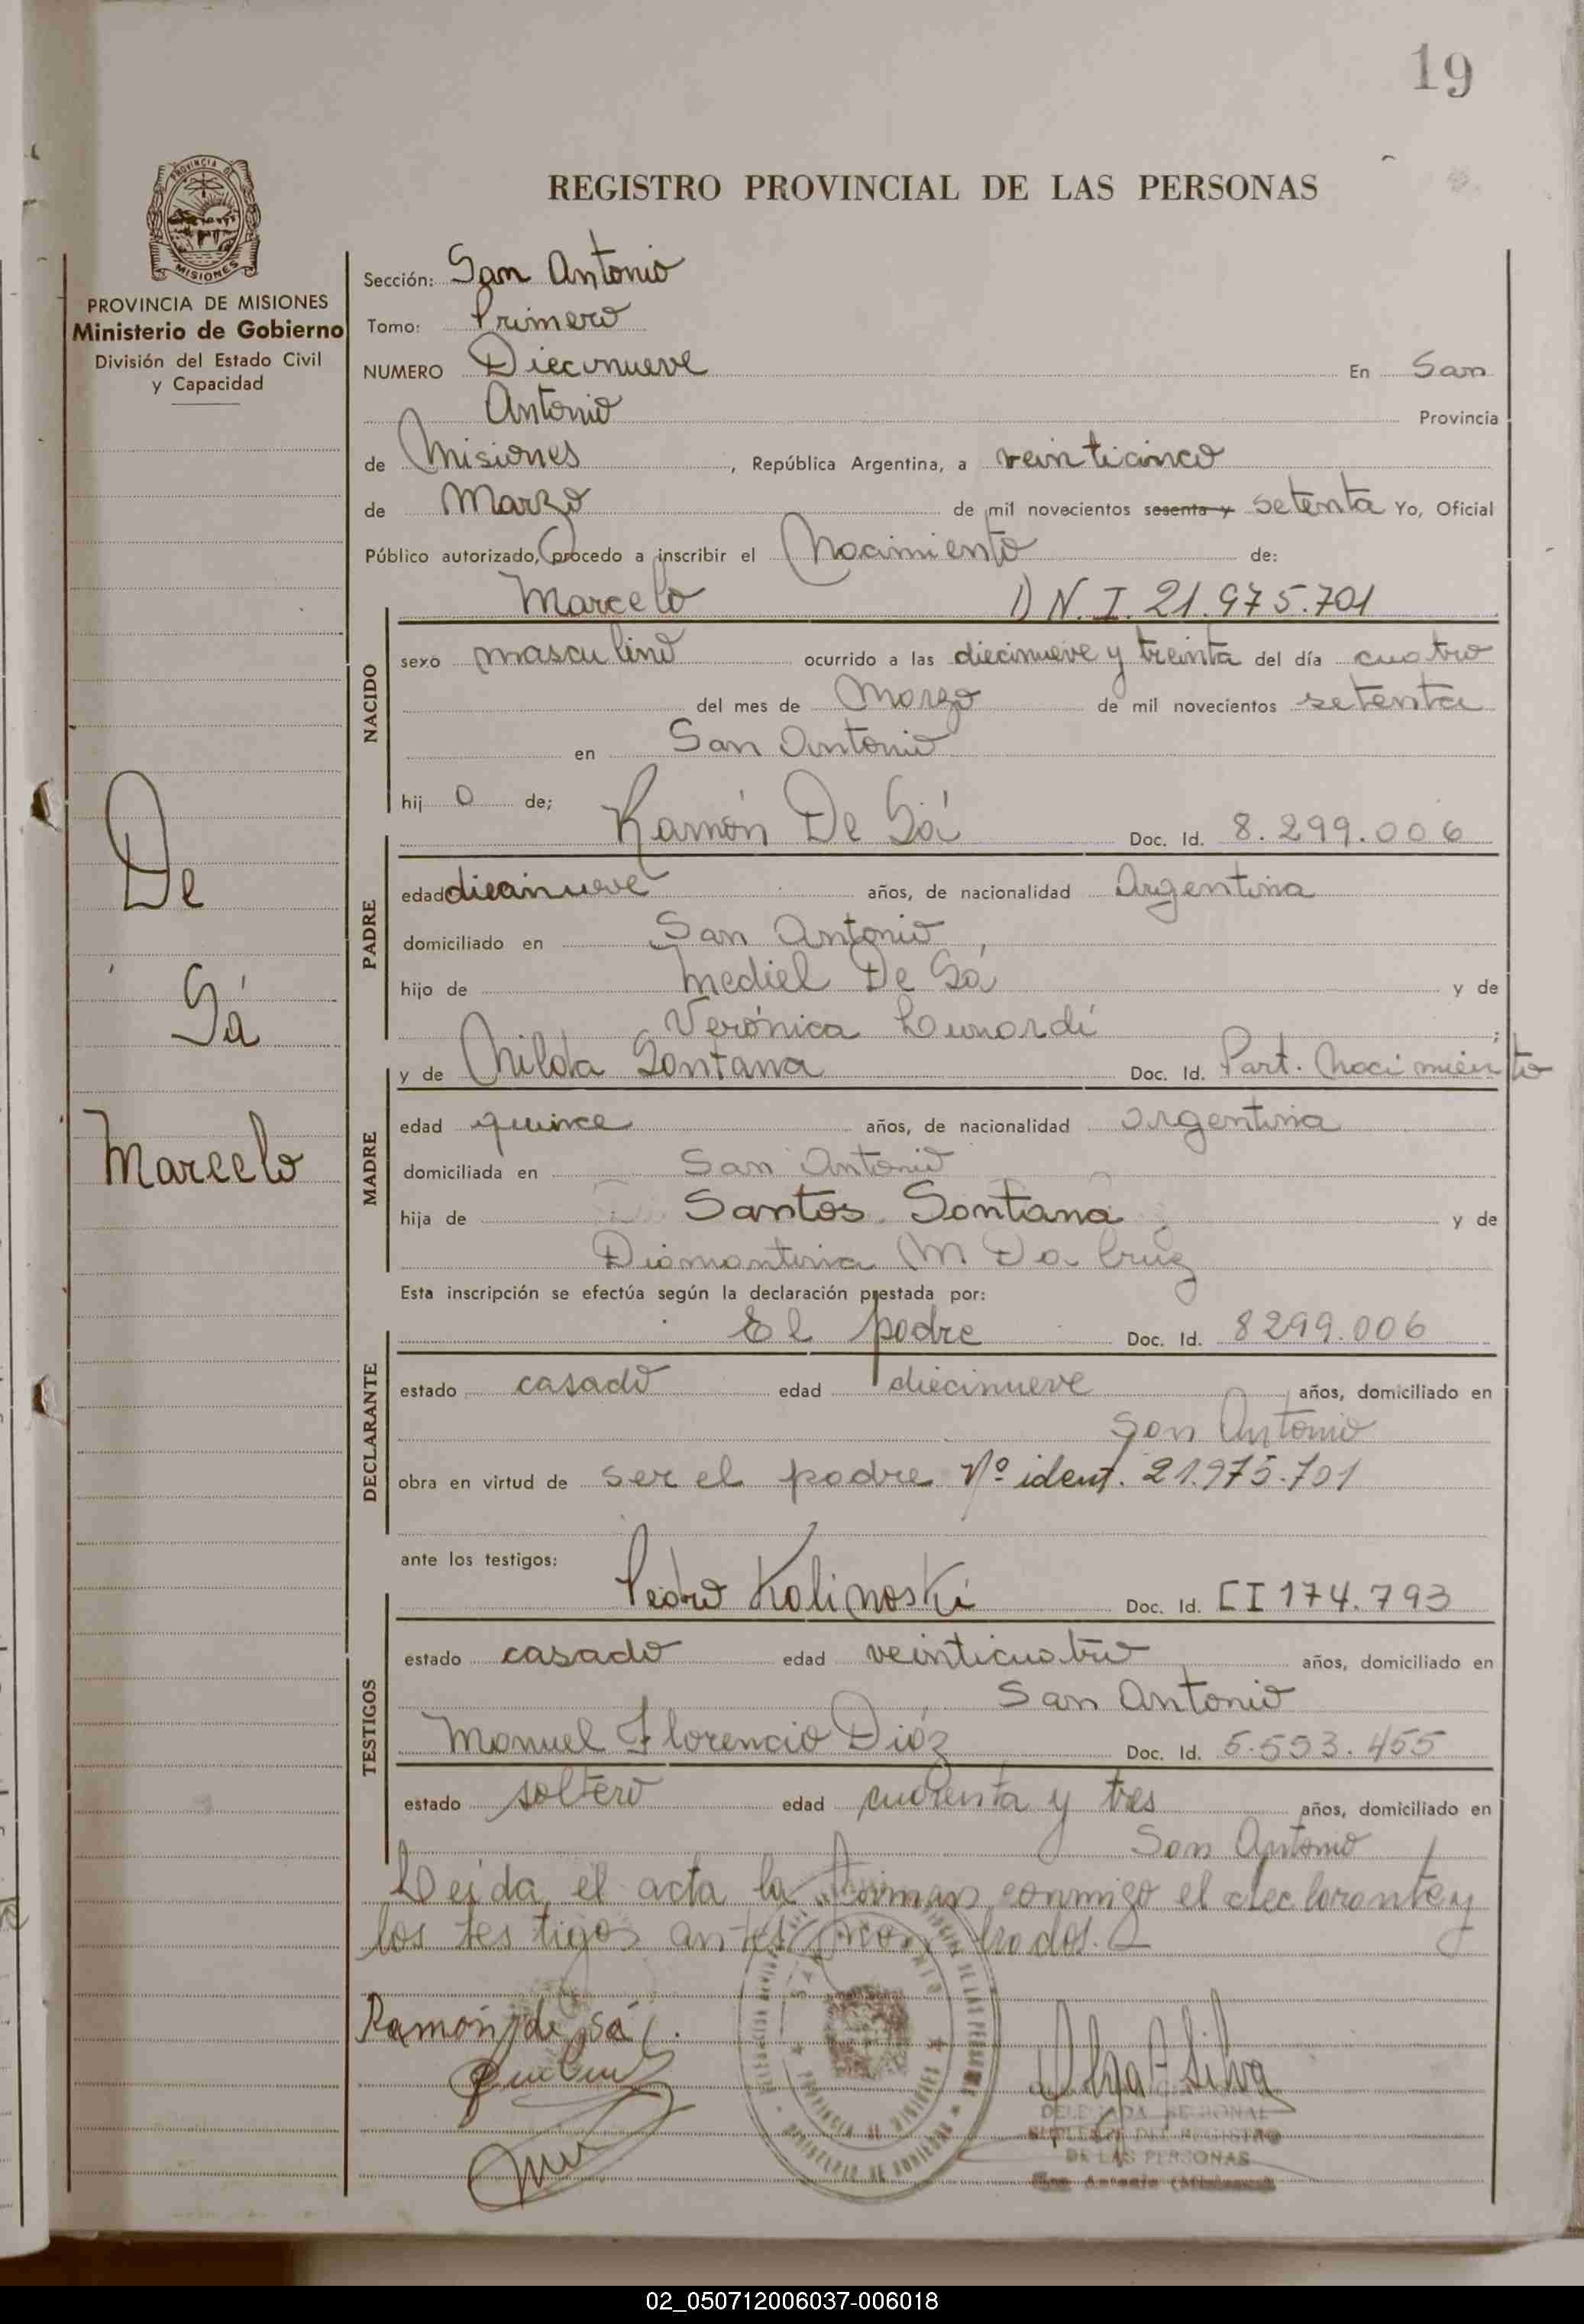 19
REGISTRO PROVINCIAL DE LAS PERSONAS
PROVINCIA DE
MISIONES
PROVINCIA DE MISIONES
Ministerio de Gobierno
División del Estado Civil
y Capacidad
De
Sá
Marcelo
Sección: San Antonio
Tomo: Primero
NUMERO Diecinueve En San
Antonio Provincia
de Misiones, República Argentina, a veinticinco
de Marzo de mil novecientos sesenta y setenta Yo, Oficial
Público autorizado, procedo a inscribir el Nacimiento de:
Marcelo D N. I. 21.975.701
NACIDO
sexo masculino ocurrido a las diecinueve y treinta del día cuatro
del mes de Marzo de mil novecientos setenta
en San Antonio
hij o de; Ramón De Sá Doc. Id. 8.299.006
PADRE
edad diecinueve años, de nacionalidad Argentina
domiciliado en San Antonio
hijo de Mediel De Sá y de
Verónica Lunardi;
y de Nilda Santana Doc. Id. Part. Nacimiento
MADRE
edad quince años, de nacionalidad argentina
domiciliada en San Antonio
hija de Santos Santana y de
Diamantina M Da Cruz
Esta inscripción se efectúa según la declaración prestada por:
El padre Doc. Id. 8299.006
DECLARANTE
estado casado edad diecinueve años, domiciliado en
San Antonio
obra en virtud de ser el padre Nº ident. 21.975.701
ante los testigos:
Pedro Kalinoski Doc. Id. CI 174.793
TESTIGOS
estado casado edad veinticuatro años, domiciliado en
San Antonio
Manuel Florencio Dióz Doc. Id. 5.553.455
estado soltero edad cuarenta y tres años, domiciliado en
San Antonio
Leida el acta la firman conmigo el declarante y
los testigos antes nombrados.
Ramón de Sá
Silva
DELEGADA REGIONAL
SUPLENTE DEL REGISTRO
DE LAS PERSONAS
San Antonio (Misiones)
PROVINCIA DE MISIONES
MINISTERIO DE GOBIERNO
02_050712006037-006018